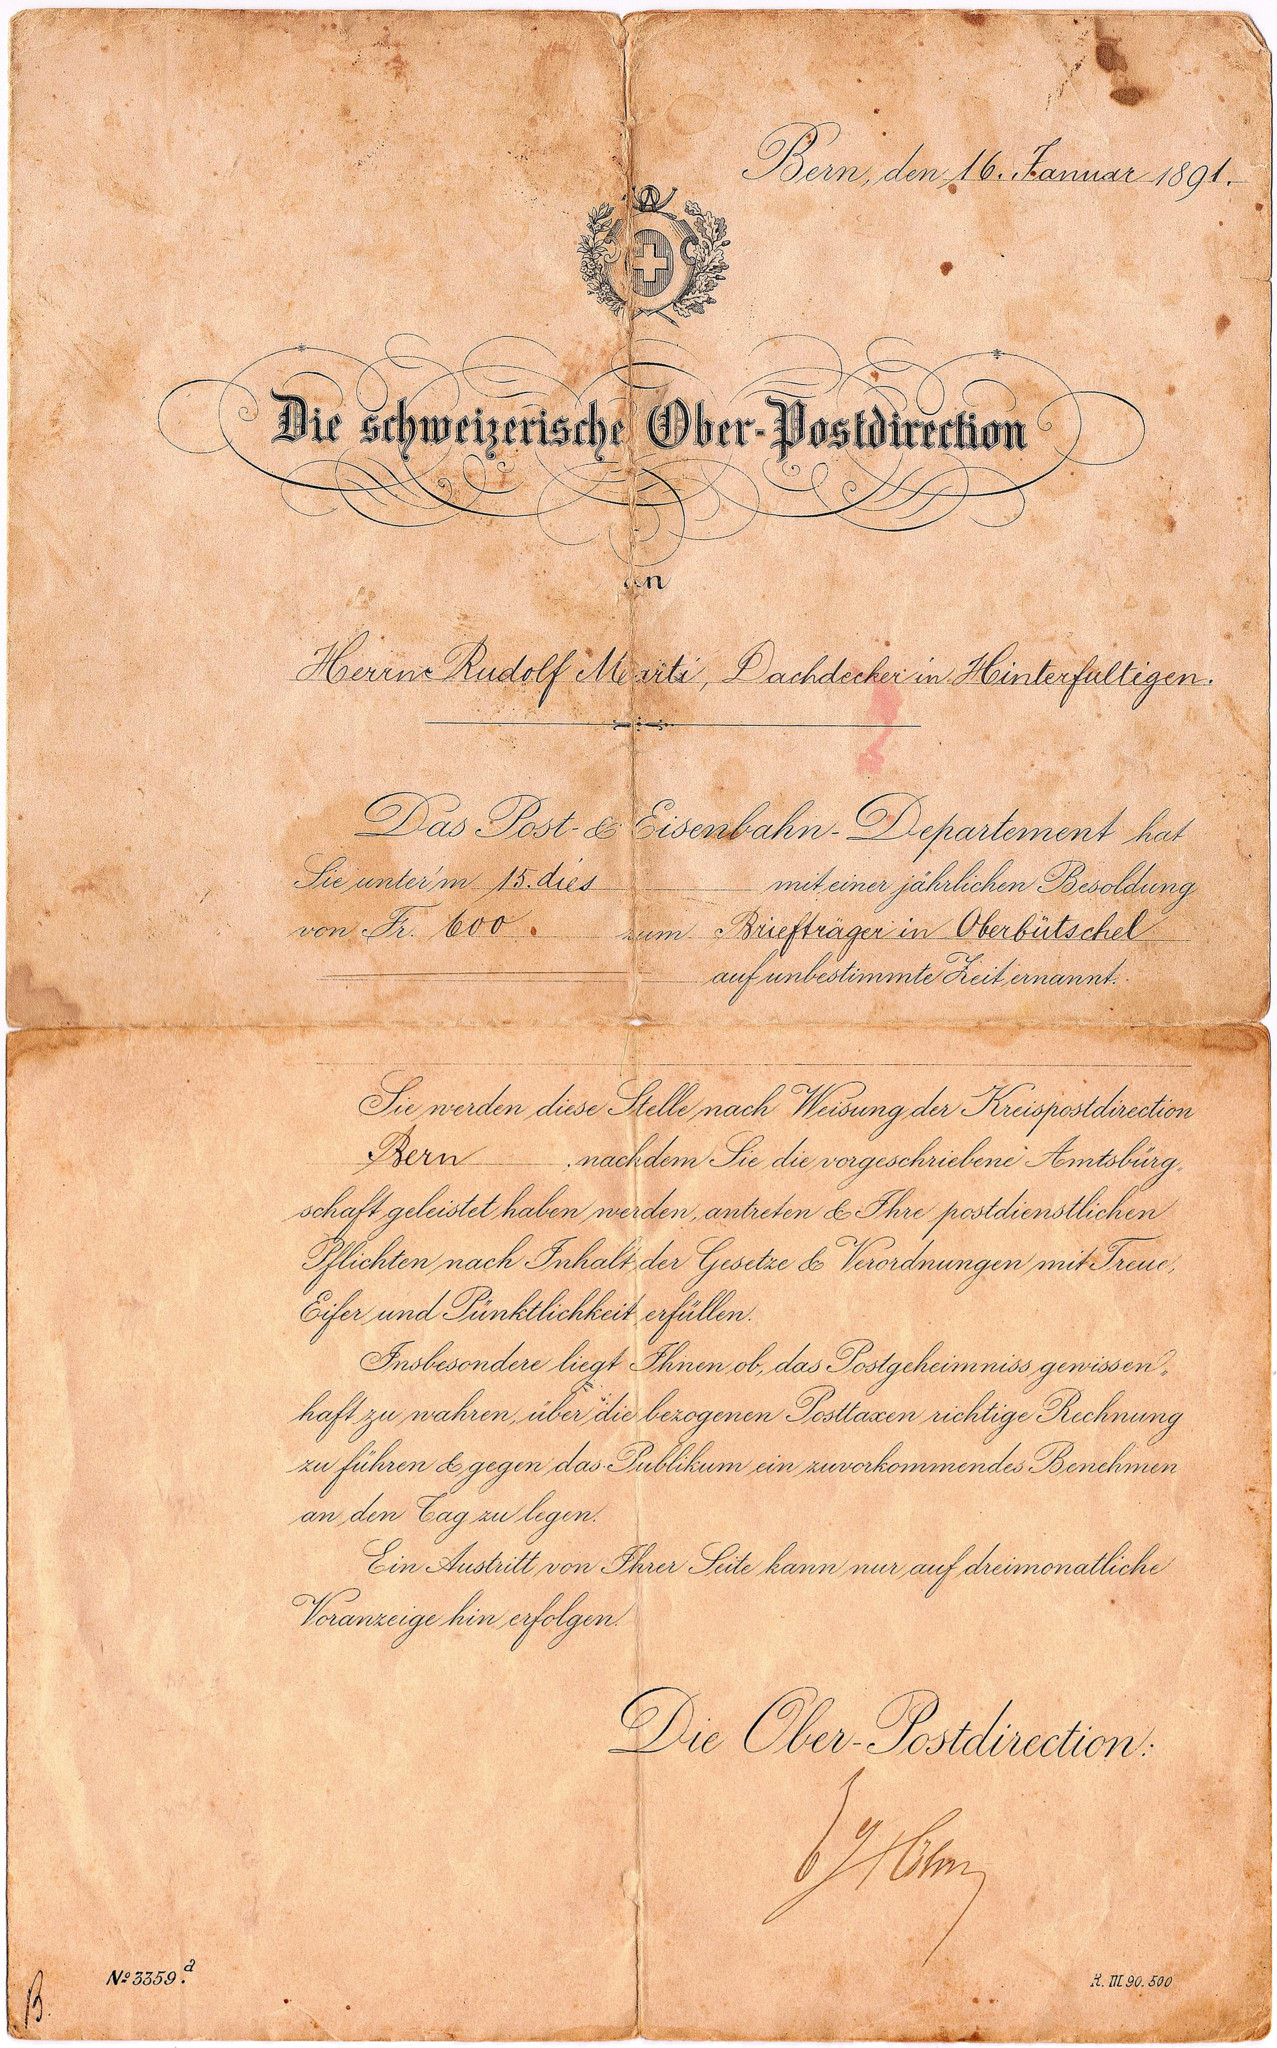 Bern, den 16. Januar 1891.
Die schweizerische Ober-Postdirection
an
Herrn Rudolf Marti, Dachdecker in Hinterfultigen.
Das Post- & Eisenbahn-Departement hat
Sie unter'm 15. dies mit einer jährlichen Besoldung
von Fr. 600. zum Briefträger in Oberbütschel
auf unbestimmte Zeit ernannt.
Sie werden diese Stelle nach Weisung der Kreispostdirection
Bern nachdem Sie die vorgeschriebene Amtsbürg„
schaft geleistet haben werden, antreten & Ihre postdienstlichen
Pflichten nach Inhalt der Gesetze & Verordnungen mit Treue,
Eifer und Pünktlichkeit erfüllen.
Insbesondere liegt Ihnen ob, das Postgeheimniss gewissen„
haft zu wahren, über die bezogenen Posttaxen richtige Rechnung
zu führen & gegen das Publikum ein zuvorkommendes Benehmen
an den Tag zu legen.
Ein Austritt von Ihrer Seite kann nur auf dreimonatliche
Voranzeige hin erfolgen.
Die Ober-Postdirection:
B.
No 3359.a
R. III 90. 500